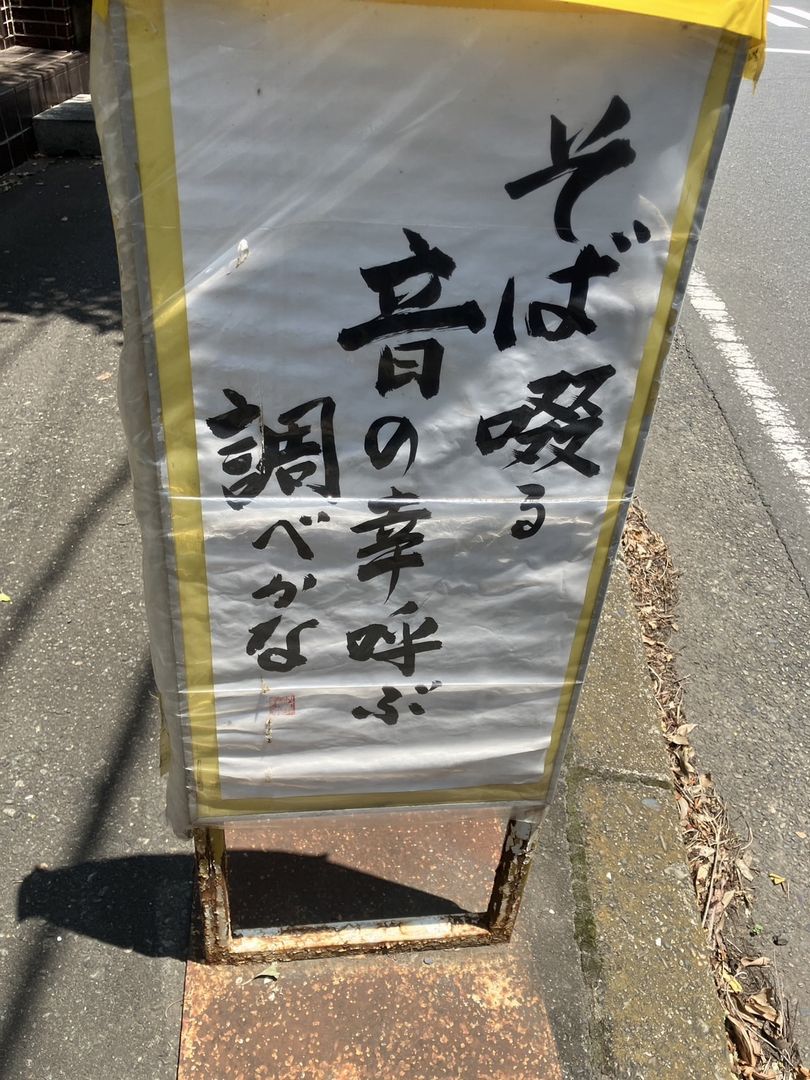 そば啜る
音の幸呼ぶ
調べかな